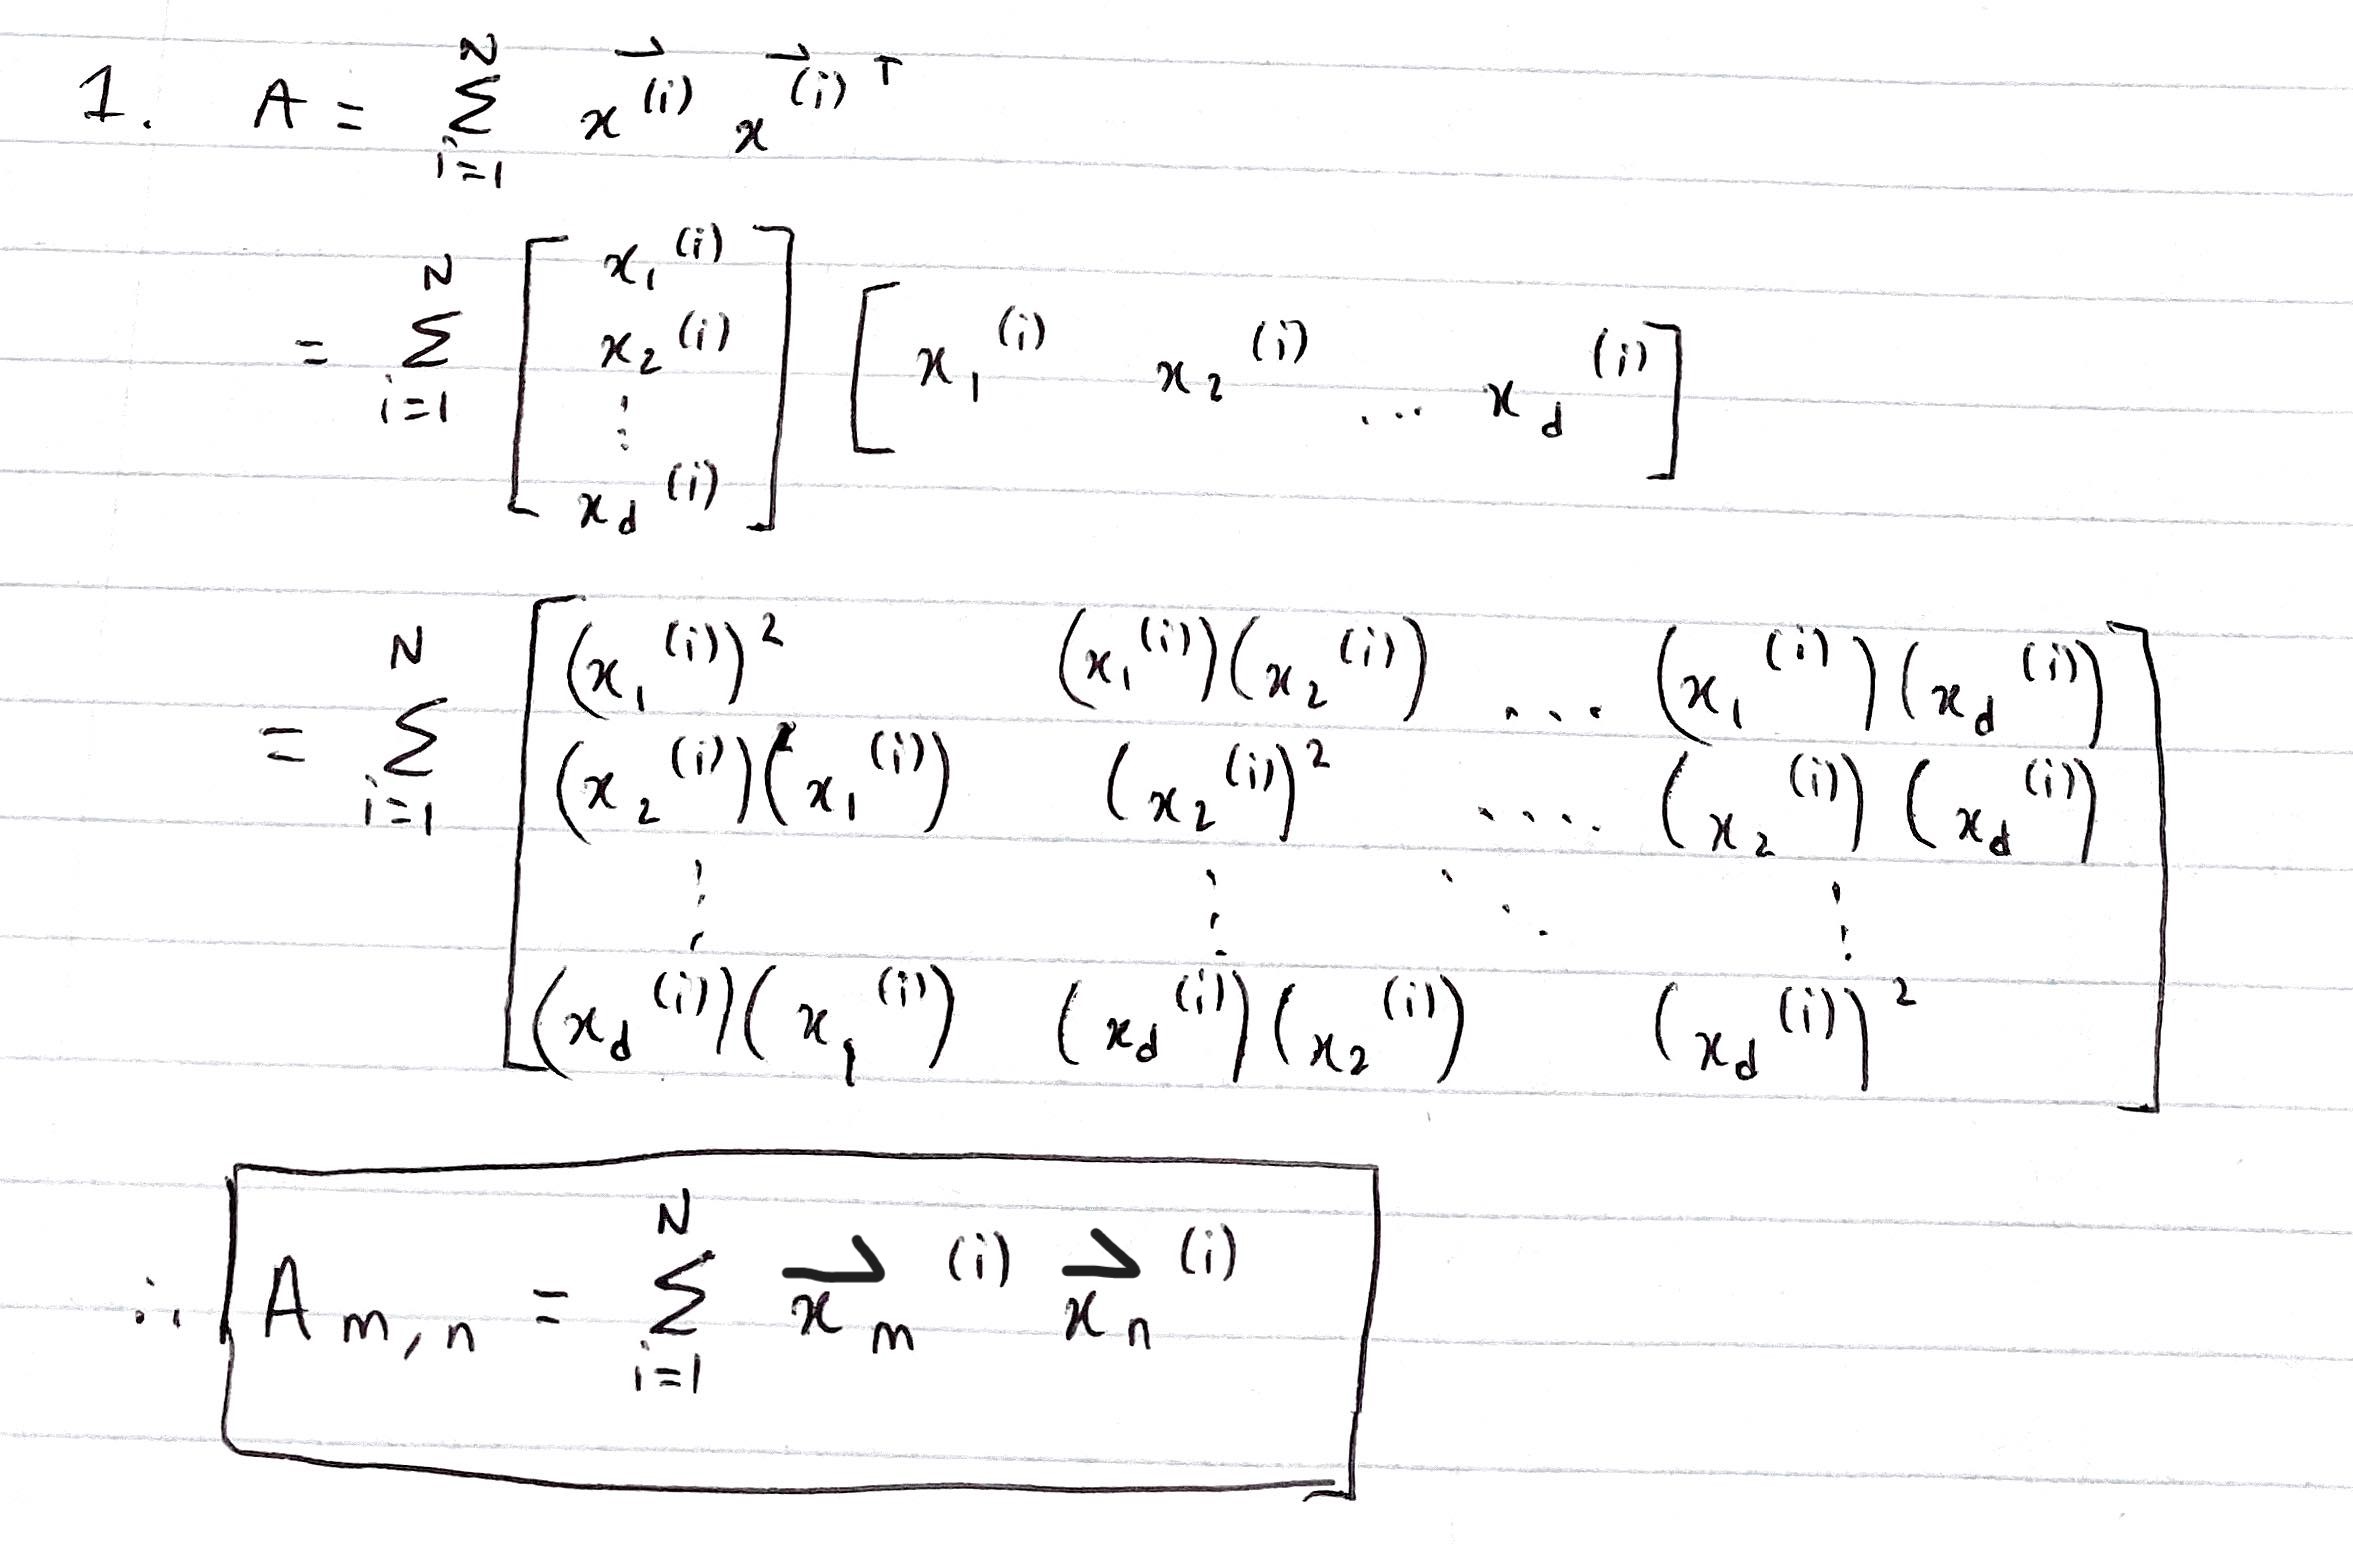 1. A = \sum_{i=1}^{N} \vec{x}^{(i)} \vec{x}^{(i)T}
= \sum_{i=1}^{N} \begin{bmatrix} x_1^{(i)} \\ x_2^{(i)} \\ \vdots \\ x_d^{(i)} \end{bmatrix} \begin{bmatrix} x_1^{(i)} & x_2^{(i)} & \dots & x_d^{(i)} \end{bmatrix}
= \sum_{i=1}^{N} \begin{bmatrix} (x_1^{(i)})^2 & (x_1^{(i)})(x_2^{(i)}) & \dots & (x_1^{(i)})(x_d^{(i)}) \\ (x_2^{(i)})(x_1^{(i)}) & (x_2^{(i)})^2 & \dots & (x_2^{(i)})(x_d^{(i)}) \\ \vdots & \vdots & \ddots & \vdots \\ (x_d^{(i)})(x_1^{(i)}) & (x_d^{(i)})(x_2^{(i)}) & & (x_d^{(i)})^2 \end{bmatrix}
\therefore A_{m,n} = \sum_{i=1}^{N} \vec{x}_m^{(i)} \vec{x}_n^{(i)}